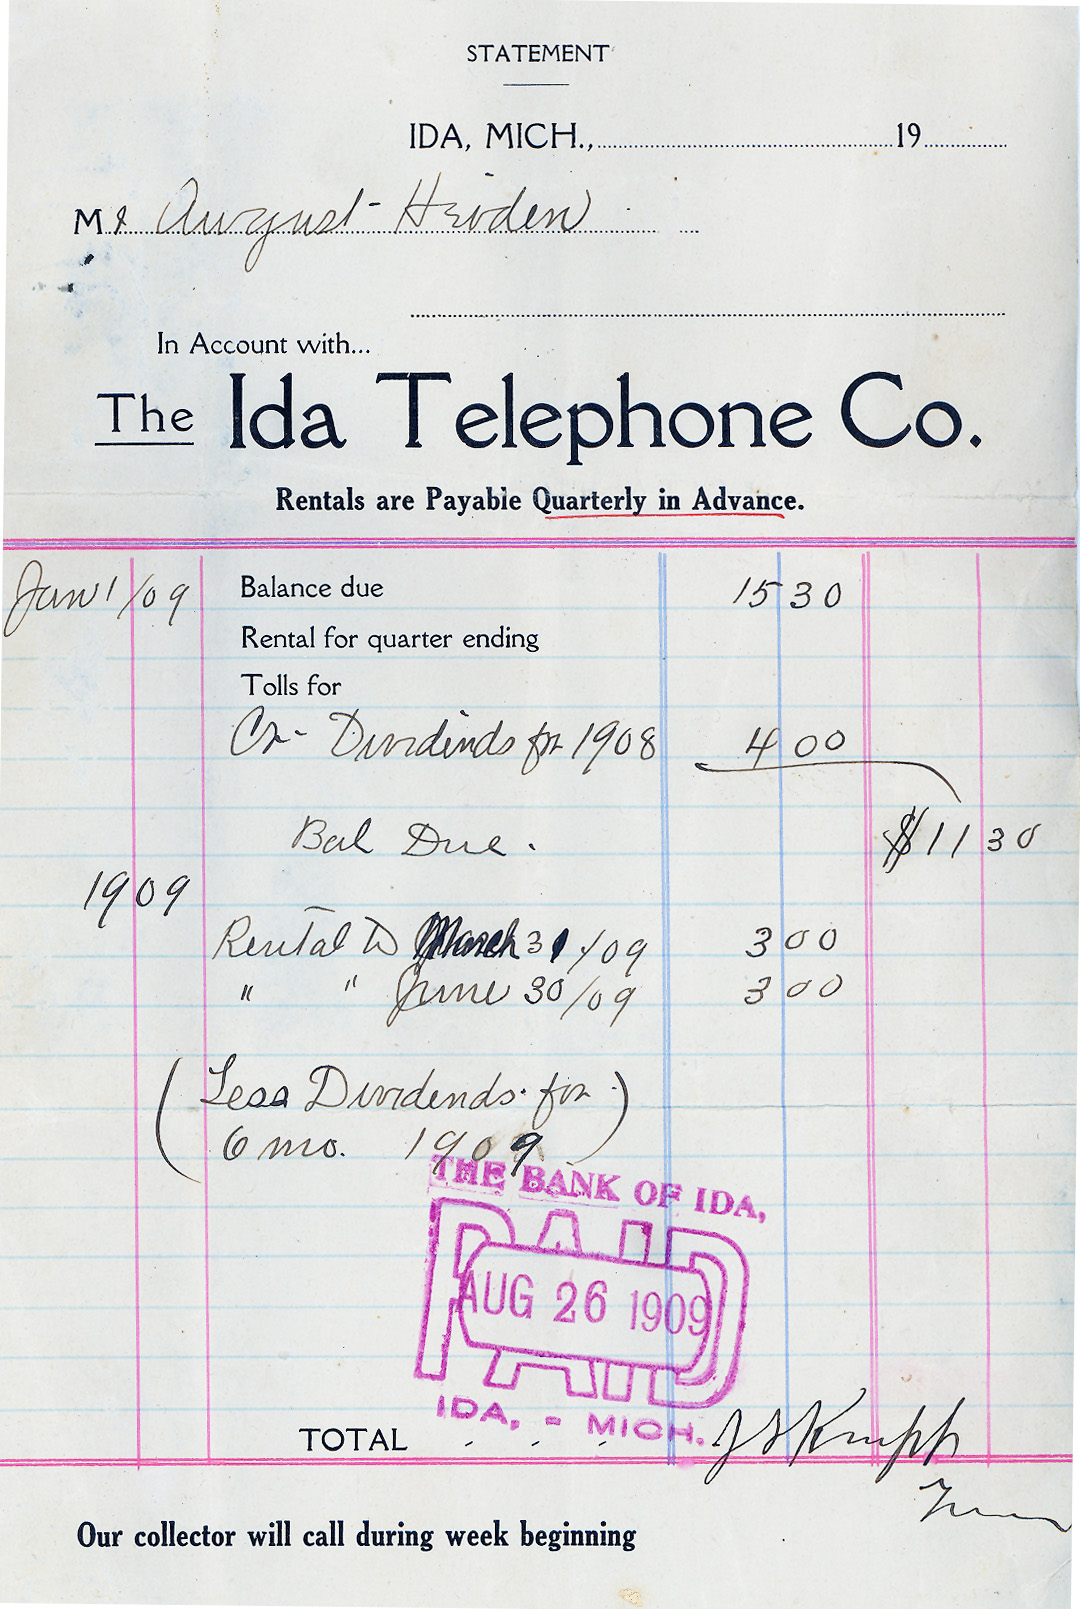 STATEMENT
IDA, MICH., 19
Mr August Heiden
In Account with...
The Ida Telephone Co.
Rentals are Payable Quarterly in Advance.
Jan 1/09 Balance due 15 30
Rental for quarter ending
Tolls for
Cr- Dividends for 1908 4 00
Bal Due. $11 30
1909
Rental to March 31/09 3 00
" " June 30/09 3 00
(Less Dividends for)
6 mo. 1909
THE BANK OF IDA,
PAID
AUG 26 1909
IDA, - MICH.
TOTAL J S Knapp
Our collector will call during week beginning